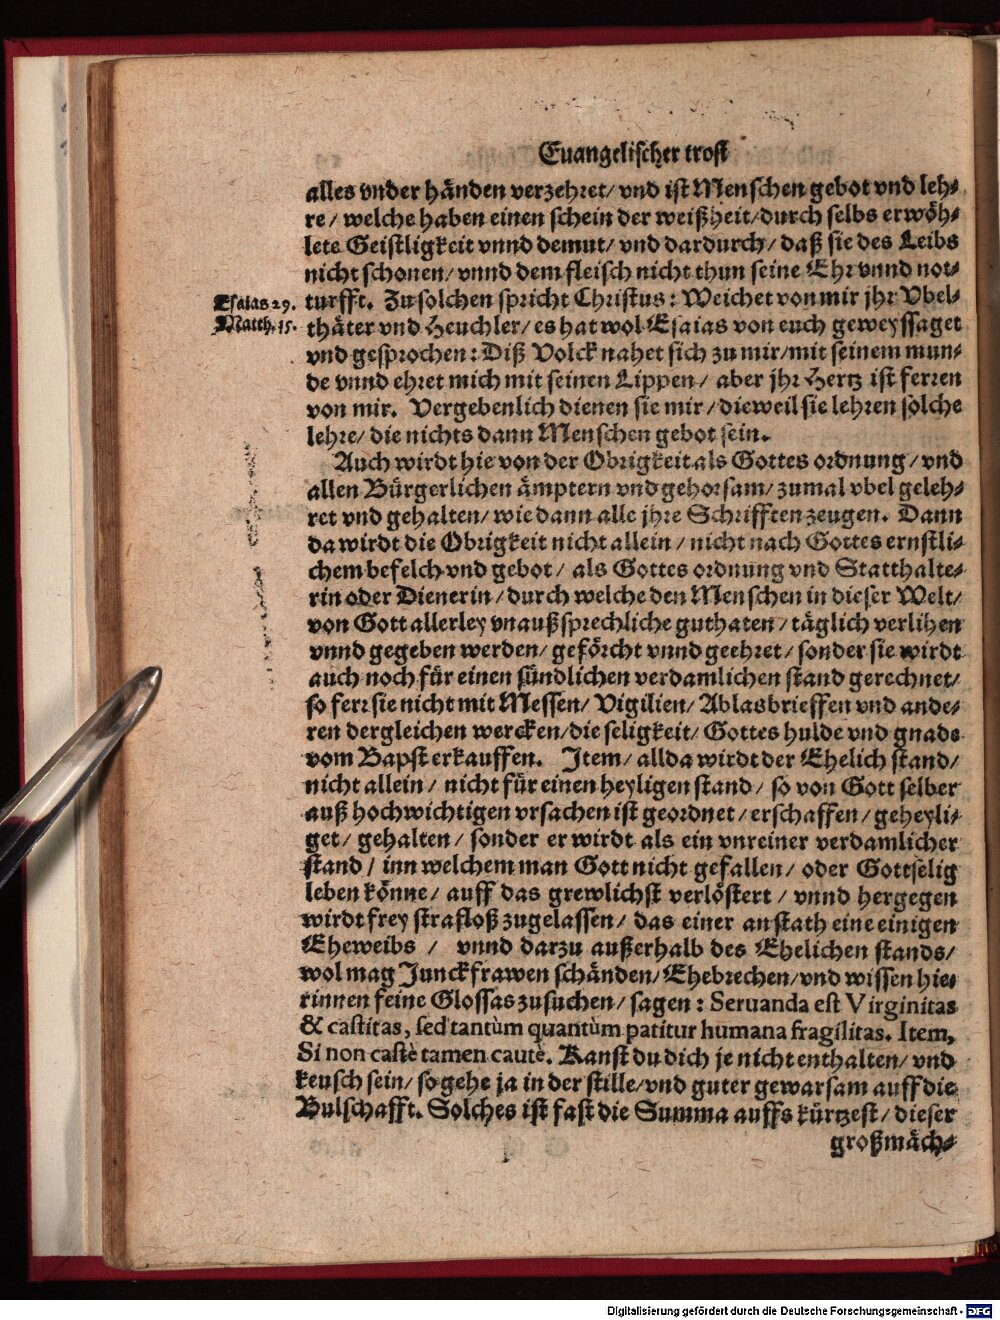 Euangelischer trost
alles vnder händen verzehret/ vnd ist Menschen gebot vnd leh-
re/ welche haben einen schein der weißheit/ durch selbs erwöh-
lete Geistligkeit vnnd demut/ vnd dardurch/ daß sie des Leibs
nicht schonen/ vnnd dem fleisch nicht thun seine Ehr vnnd not-
Esaias 29.
Matth. 15.
turfft. Zu solchen spricht Christus: Weichet von mir jhr Vbel-
thäter vnd Heuchler/ es hat wol Esaias von euch geweyssaget
vnd gesprochen: Diß Volck nahet sich zu mir/ mit seinem mun-
de vnnd ehret mich mit seinen Lippen/ aber jhr Hertz ist ferren
von mir. Vergebenlich dienen sie mir/ dieweil sie lehren solche
lehre/ die nichts dann Menschen gebot sein.
Auch wirdt hie von der Obrigkeit als Gottes ordnung/ vnd
allen Bürgerlichen ämptern vnd gehorsam/ zumal vbel geleh-
ret vnd gehalten/ wie dann alle jhre Schrifften zeugen. Dann
da wirdt die Obrigkeit nicht allein/ nicht nach Gottes ernstli-
chem befelch vnd gebot/ als Gottes ordnung vnd Statthalte-
rin oder Dienerin/ durch welche den Menschen in dieser Welt/
von Gott allerley vnaußsprechliche guthaten/ täglich verlihen
vnnd gegeben werden/ geförcht vnnd geehret/ sonder sie wirdt
auch noch für einen sündlichen verdamlichen stand gerechnet/
so ferr sie nicht mit Messen/ Vigilien/ Ablasbrieffen vnd ande-
ren dergleichen wercken/ die seligkeit/ Gottes hulde vnd gnade
vom Bapst erkauffen. Item/ allda wirdt der Ehelich stand/
nicht allein/ nicht für einen heyligen stand/ so von Gott selber
auß hochwichtigen vrsachen ist geordnet/ erschaffen/ geheyli-
get/ gehalten/ sonder er wirdt als ein vnreiner verdamlicher
stand/ inn welchem man Gott nicht gefallen/ oder Gottselig
leben könne/ auff das grewlichst verlöstert/ vnnd hergegen
wirdt frey strafloß zugelassen/ das einer anstath eine einigen
Eheweibs/ vnnd darzu außerhalb des Ehelichen stands/
wol mag Junckfrawen schänden/ Ehebrechen/ vnd wissen hie-
rinnen feine Glossas zu suchen/ sagen: Seruanda est Virginitas
& castitas, sed tantùm quantùm patitur humana fragilitas. Item,
Si non castè tamen cautè. Kanst du dich je nicht enthalten/ vnd
keusch sein/ so gehe ja in der stille/ vnd guter gewarsam auff die
Bulschafft. Solches ist fast die Summa auffs kürtzest/ dieser
großmäch-
Digitalisierung gefördert durch die Deutsche Forschungsgemeinschaft - DFG